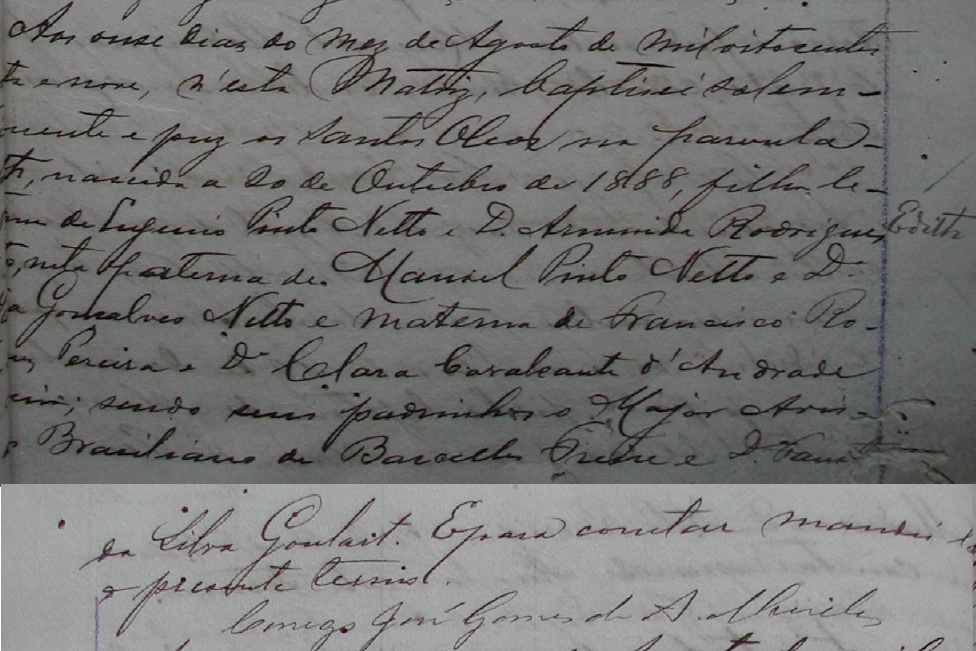 Aos onse dias do mez de Agosto de mil oitocentos
ta e nove, n'esta Matriz, baptisei solem-
mente e puz os santos Oleos na parvula
th, nascida a 20 de Outubro de 1888, filha le-
de Eugenio Pinto Netto e D. Arminda Rodrigues
Edith
neta paterna de Manoel Pinto Netto e D.
a Gonsalves Netto e materna de Francisco Ro-
Pereira e D. Clara Cavalcante d'Andrade
sendo seus padrinhos o Major Aris-
Brasiliano de Barcellos Freire e D. Faust
da Silva Goulart. E para constar mandei
o presente termo.
Conego José Gomes de A.